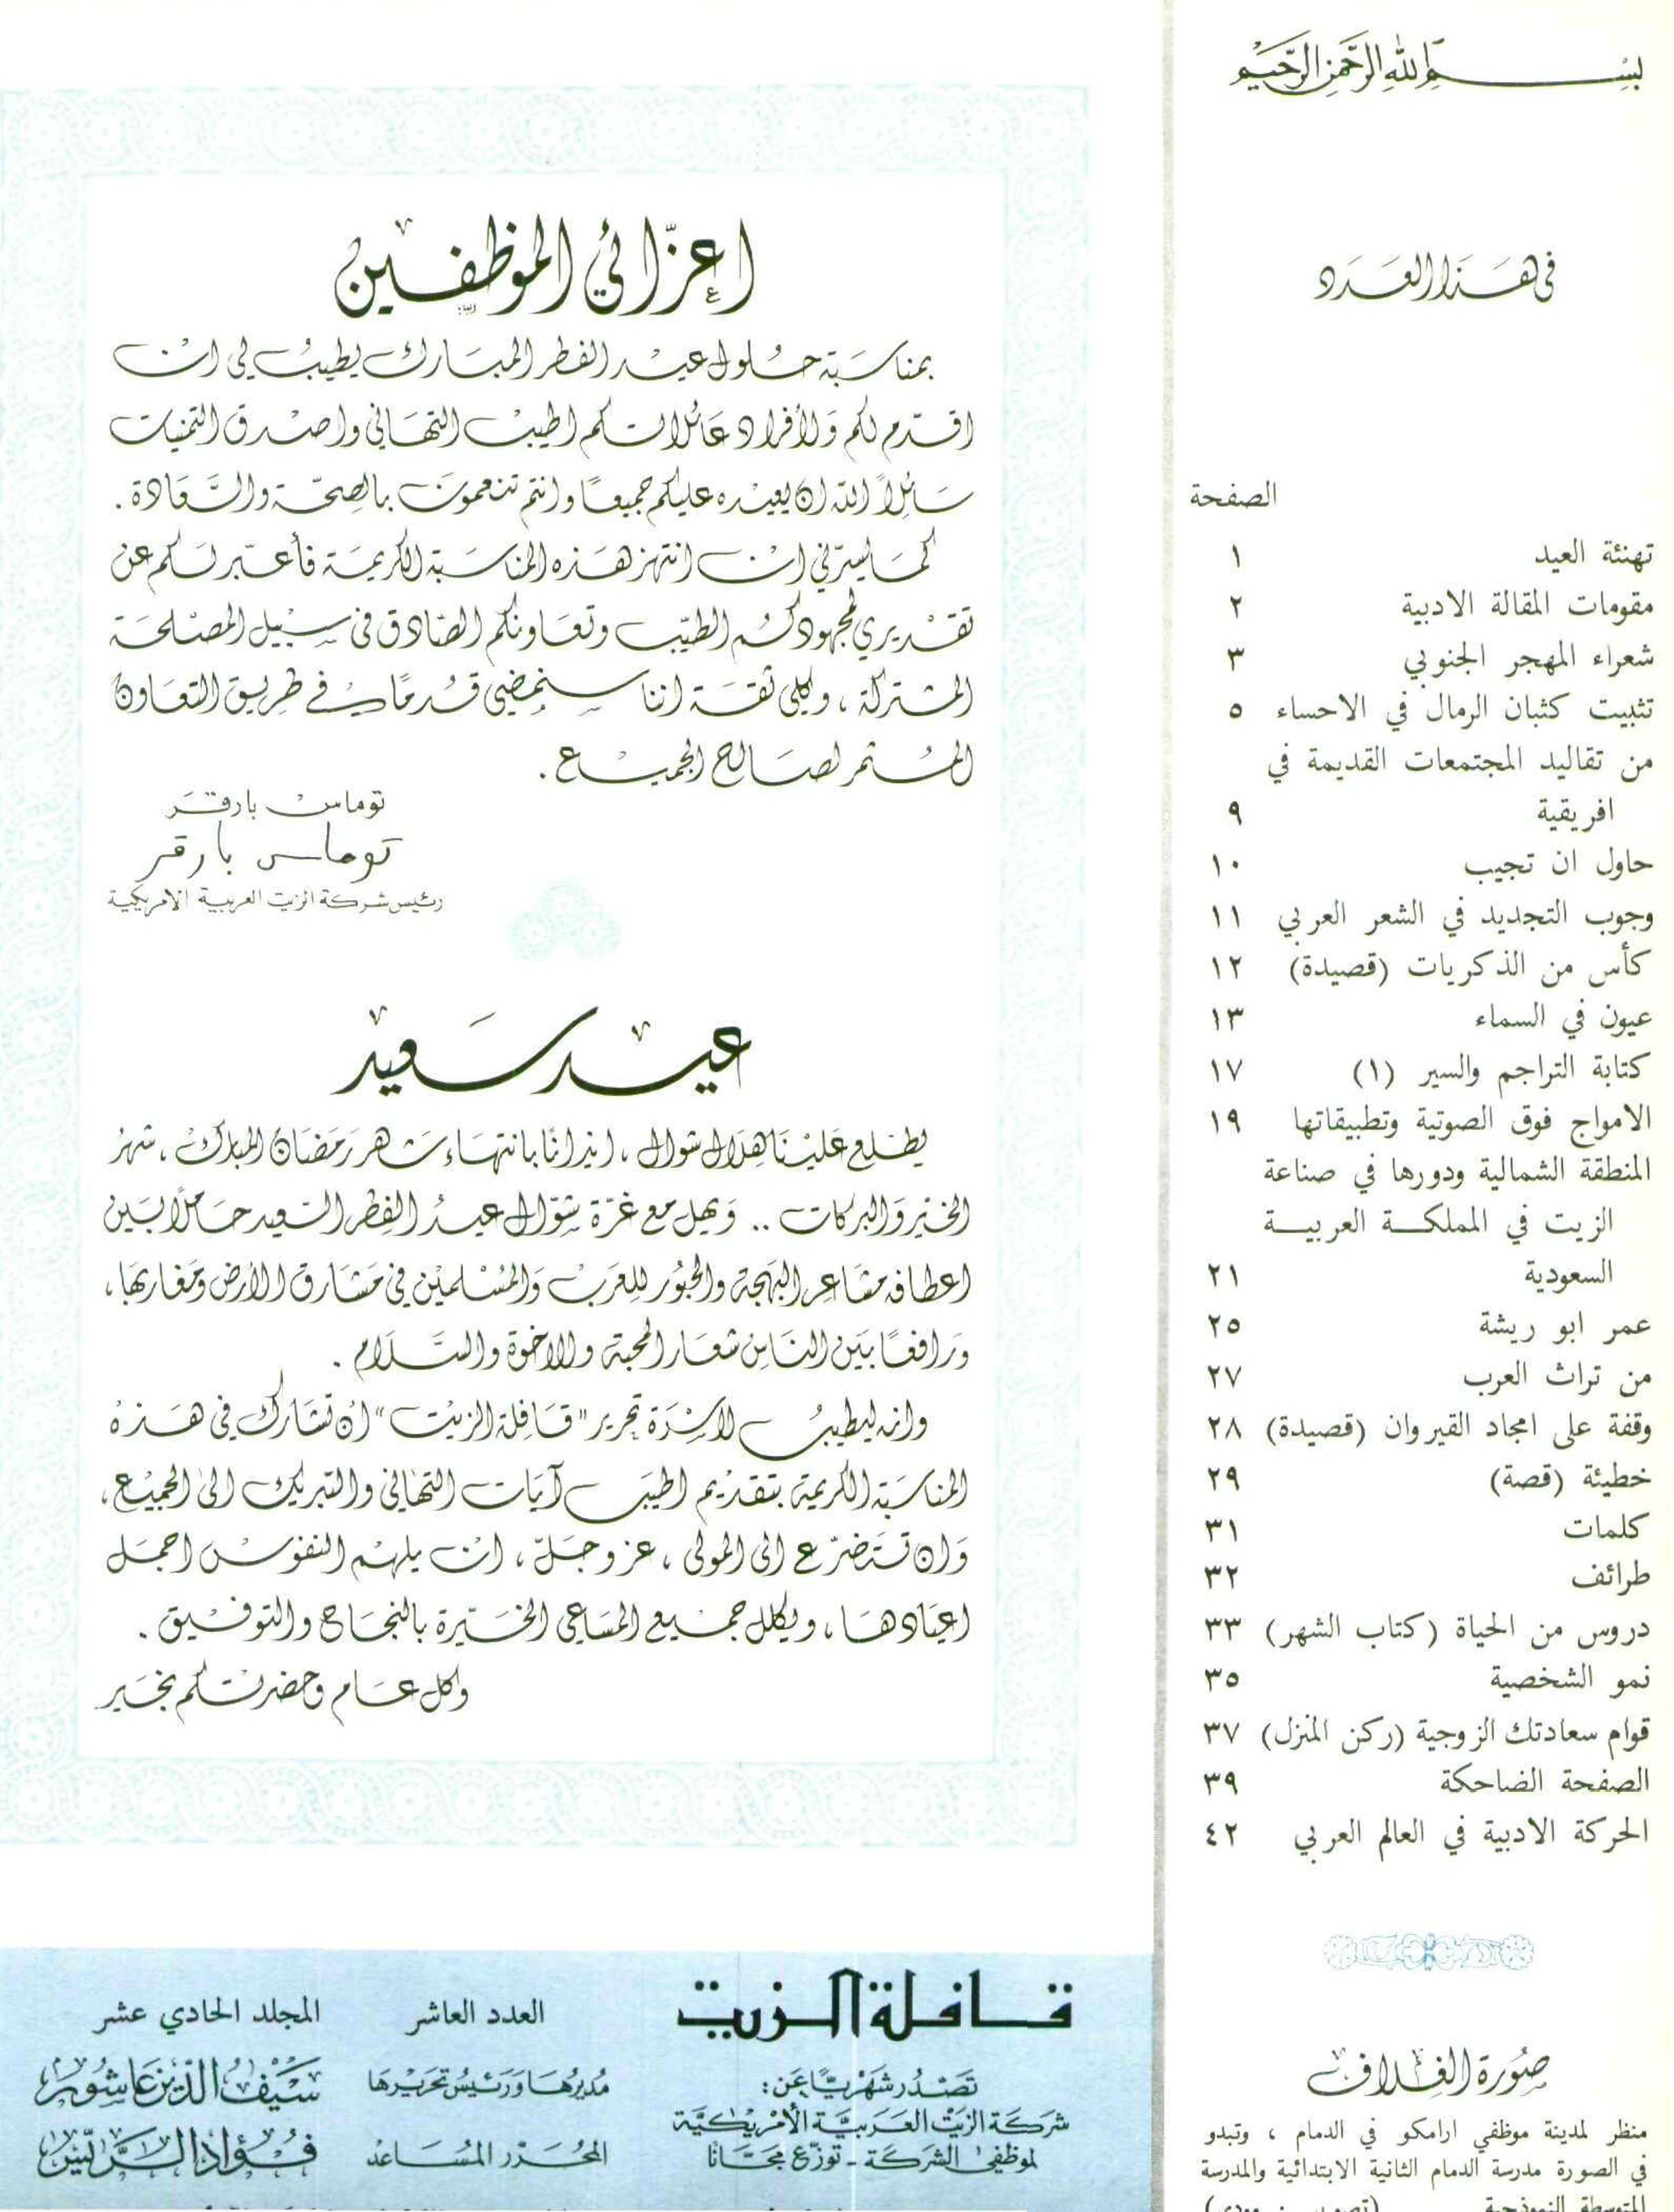 بسم الله الرحمن الرحيم
في هذا العدد
الصفحة
تهنئة العيد ١
مقومات المقالة الادبية ٢
شعراء المهجر الجنوبي ٣
تثبيت كثبان الرمال في الاحساء ٥
من تقاليد المجتمعات القديمة في
افريقية ٩
حاول ان تجيب ١٠
وجوب التجديد في الشعر العربي ١١
كأس من الذكريات (قصيدة) ١٢
عيون في السماء ١٣
كتابة التراجم والسير (١) ١٧
الامواج فوق الصوتية وتطبيقاتها ١٩
المنطقة الشمالية ودورها في صناعة
الزيت في المملكة العربية
السعودية ٢١
عمر ابو ريشة ٢٥
من تراث العرب ٢٧
وقفة على امجاد القيروان (قصيدة) ٢٨
خطيئة (قصة) ٢٩
كلمات ٣١
طرائف ٣٢
دروس من الحياة (كتاب الشهر) ٣٣
نمو الشخصية ٣٥
قوام سعادتك الزوجية (ركن المنزل) ٣٧
الصفحة الضاحكة ٣٩
الحركة الادبية في العالم العربي ٤٢
صورة الغلاف
منظر لمدينة موظفي ارامكو في الدمام ، وتبدو
في الصورة مدرسة الدمام الثانية الابتدائية والمدرسة
المتوسطة النموذجية
اعزائي الموظفين
بمناسبة حلول عيد الفطر المبارك يطيب لي ان
اقدم لكم ولأفراد عائلاتكم اطيب التهاني واصدق التمنيات
سائلاً الله ان يعيده عليكم جميعاً وانتم تنعمون بالصحة والسعادة .
كما يسرني ان انتهز هذه المناسبة الكريمة فأعبر لكم عن
تقديري لمجهودكم الطيب وتعاونكم الصادق في سبيل المصلحة
المشتركة ، وكلي ثقة اننا سنمضي قدماً في طريق التعاون
المستمر لصالح الجميع .
توماس بارقر
توماس بارقر
رئيس شركة الزيت العربية الامريكية
عيد سعيد
يطلع علينا هلال شوال ، ايذاناً بانتهاء شهر رمضان المبارك ، شهر
الخير والبركات .. ويهل مع غرة شوال عيد الفطر السعيد حاملاً بين
اعطافه مشاعر البهجة والحبور للعرب والمسلمين في مشارق الأرض ومغاربها ،
ورافعاً بين الناس شعار المحبة والاخوة والسلام .
وانه ليطيب لاسرة تحرير "قافلة الزيت" ان تشارك في هذه
المناسبة الكريمة بتقديم اطيب آيات التهاني والتبريك الى الجميع ،
وان تتضرع الى المولى ، عز وجل ، ان يلهم النفوس اجمل
اعيادها ، ويكلل جميع المساعي الخيرة بالنجاح والتوفيق .
وكل عام وحضرتكم بخير
قافلة الزيت
تصدر شهرياً عن :
شركة الزيت العربية الأمريكية
لموظفي الشركة - توزع مجاناً
العدد العاشر المجلد الحادي عشر
مديرها ورئيس تحريرها سيف الدين عاشور
المحرر المساعد فؤاد الريس